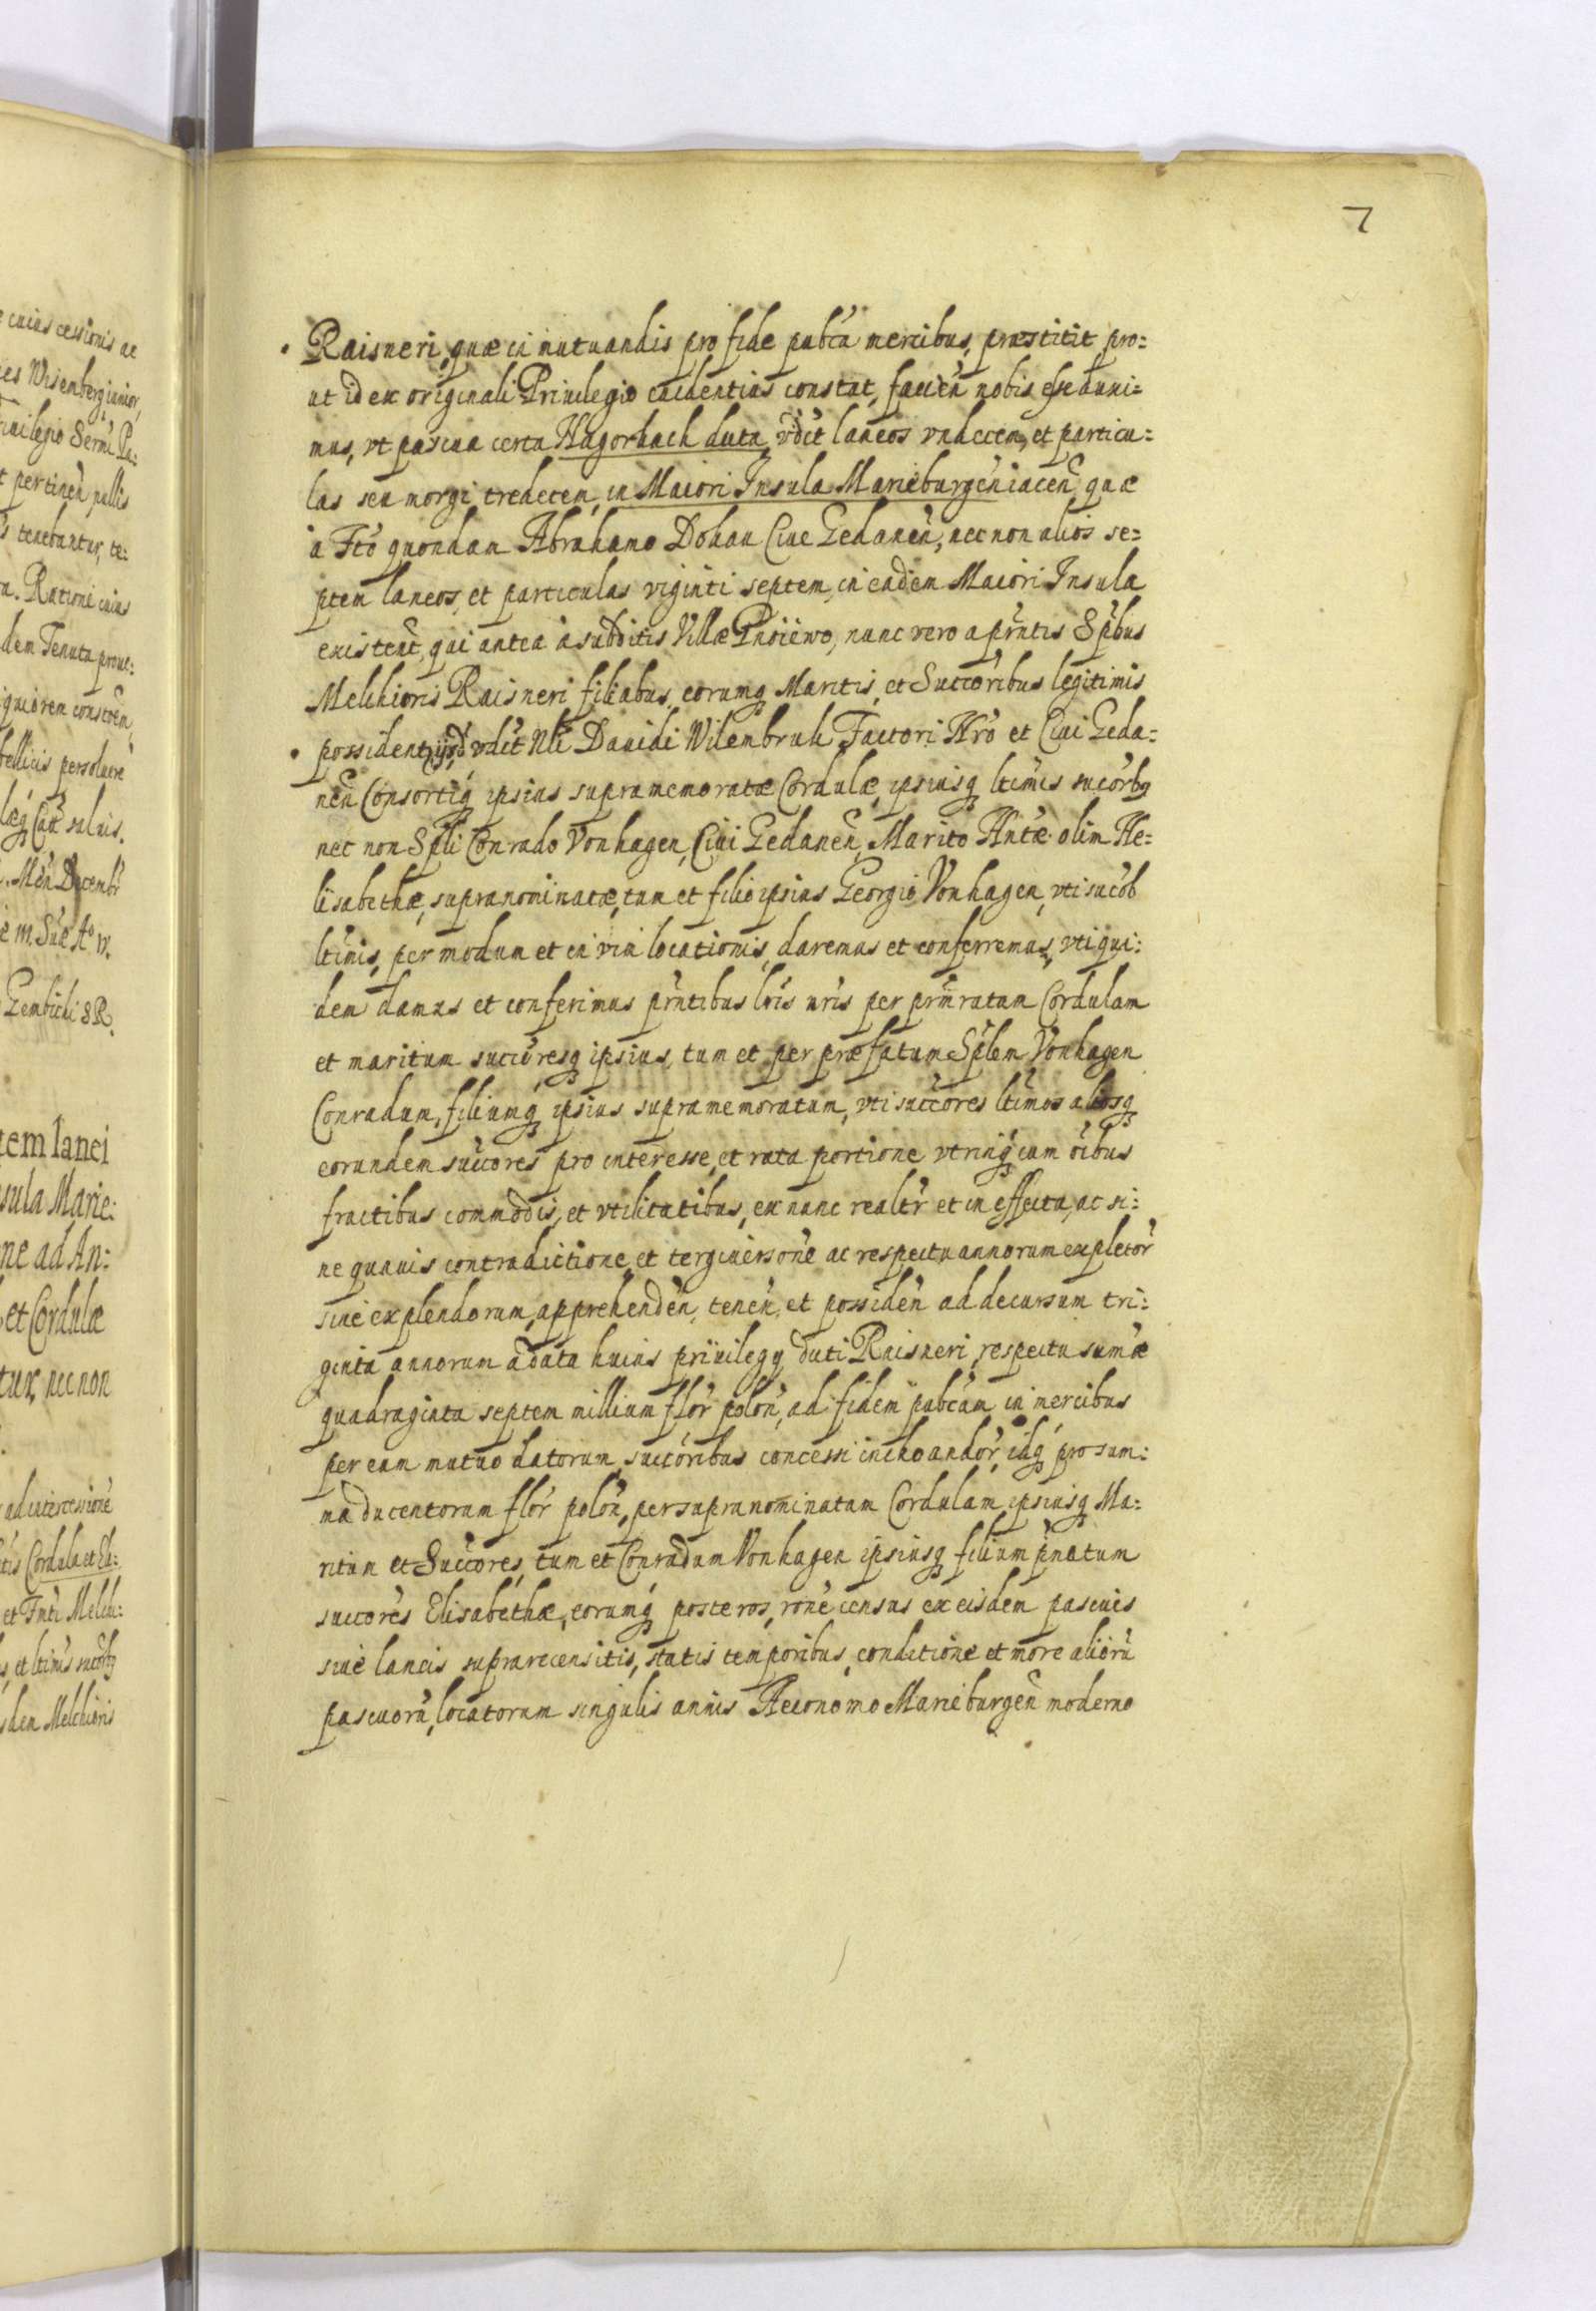 7
Raisneri, quæ in mutuandis pro fide pubca mercibus, præstitit pro:
ut id ex originali Priuilegio euidentius constat, facien nobis esse duxi:
mus, vt pascua certa Hagorhach duta, vdct laneos vndecem, et particu:
las seu morgi tredecem, in Maiori Insula Marieburgen iacen quæ
à Fto quondam Abrahamo Dohau Ciue Gedanen, nec non alios se:
ptem laneos, et particulas viginti septem, in eadem Maiori Insula
existent, qui antea à subditis Villæ Pnoiewo, nunc vero a prntis Spbus
Melchioris Raisneri filiabus, eorumq Maritis, et Successoribus legitimis
possident, vdct Nli Dauidi Wilembruh Factori Nro et Ciui Geda:
nen Consortiq ipsius supramemoratæ Cordulæ, ipsiusq ltimis succorbq
nec non Spli Conrado Vonhagen, Ciui Gedanen, Marito olim He:
lisabethæ, supranominatæ, tum et filio ipsius Georgio Vonhagen, vti succob
ltimis, per modum et in vim locationis, daremus et conferremus, vti qui:
dem damus et conferimus prntibus lris nris per prnratam Cordulam
et maritum succoresq ipsius, tum et per præfatum Splem Vonhagen
Conradum, filiumq ipsius supramemoratum, vti succores ltimos aliosq
eorundem succores pro interesse, et rata portione vtrinq cum oibus
fructibus commodis, et vtilitatibus, ex nunc realtr et in effectu, ac si:
ne quauis contradictione, et tergiuersone ac respectu annorum expletor
siue explendorum, apprehenden, tenen, et possiden ad decursum tri:
ginta annorum à data huius priuilegy, duti Raisneri, respectu sumæ
quadraginta septem millium flor polon, ad fidem pubcam in mercibus
per eum mutuo datorum, succoribus concessi inchoandor, idq pro sum:
ma ducentorum flor polon, per supranominatam Cordulam, ipsiusq Ma:
ritum et Succores, tum et Conradum Vonhagen ipsiusq filium pnatum
succores Elisabethæ, eorumq posteros, rone census ex eisdem pascuis
siue laneis suprarecensitis, statis temporibus, conditione et more aliorū
pascuorū, locatorum singulis annis Aeconomo Marieburgen moderno